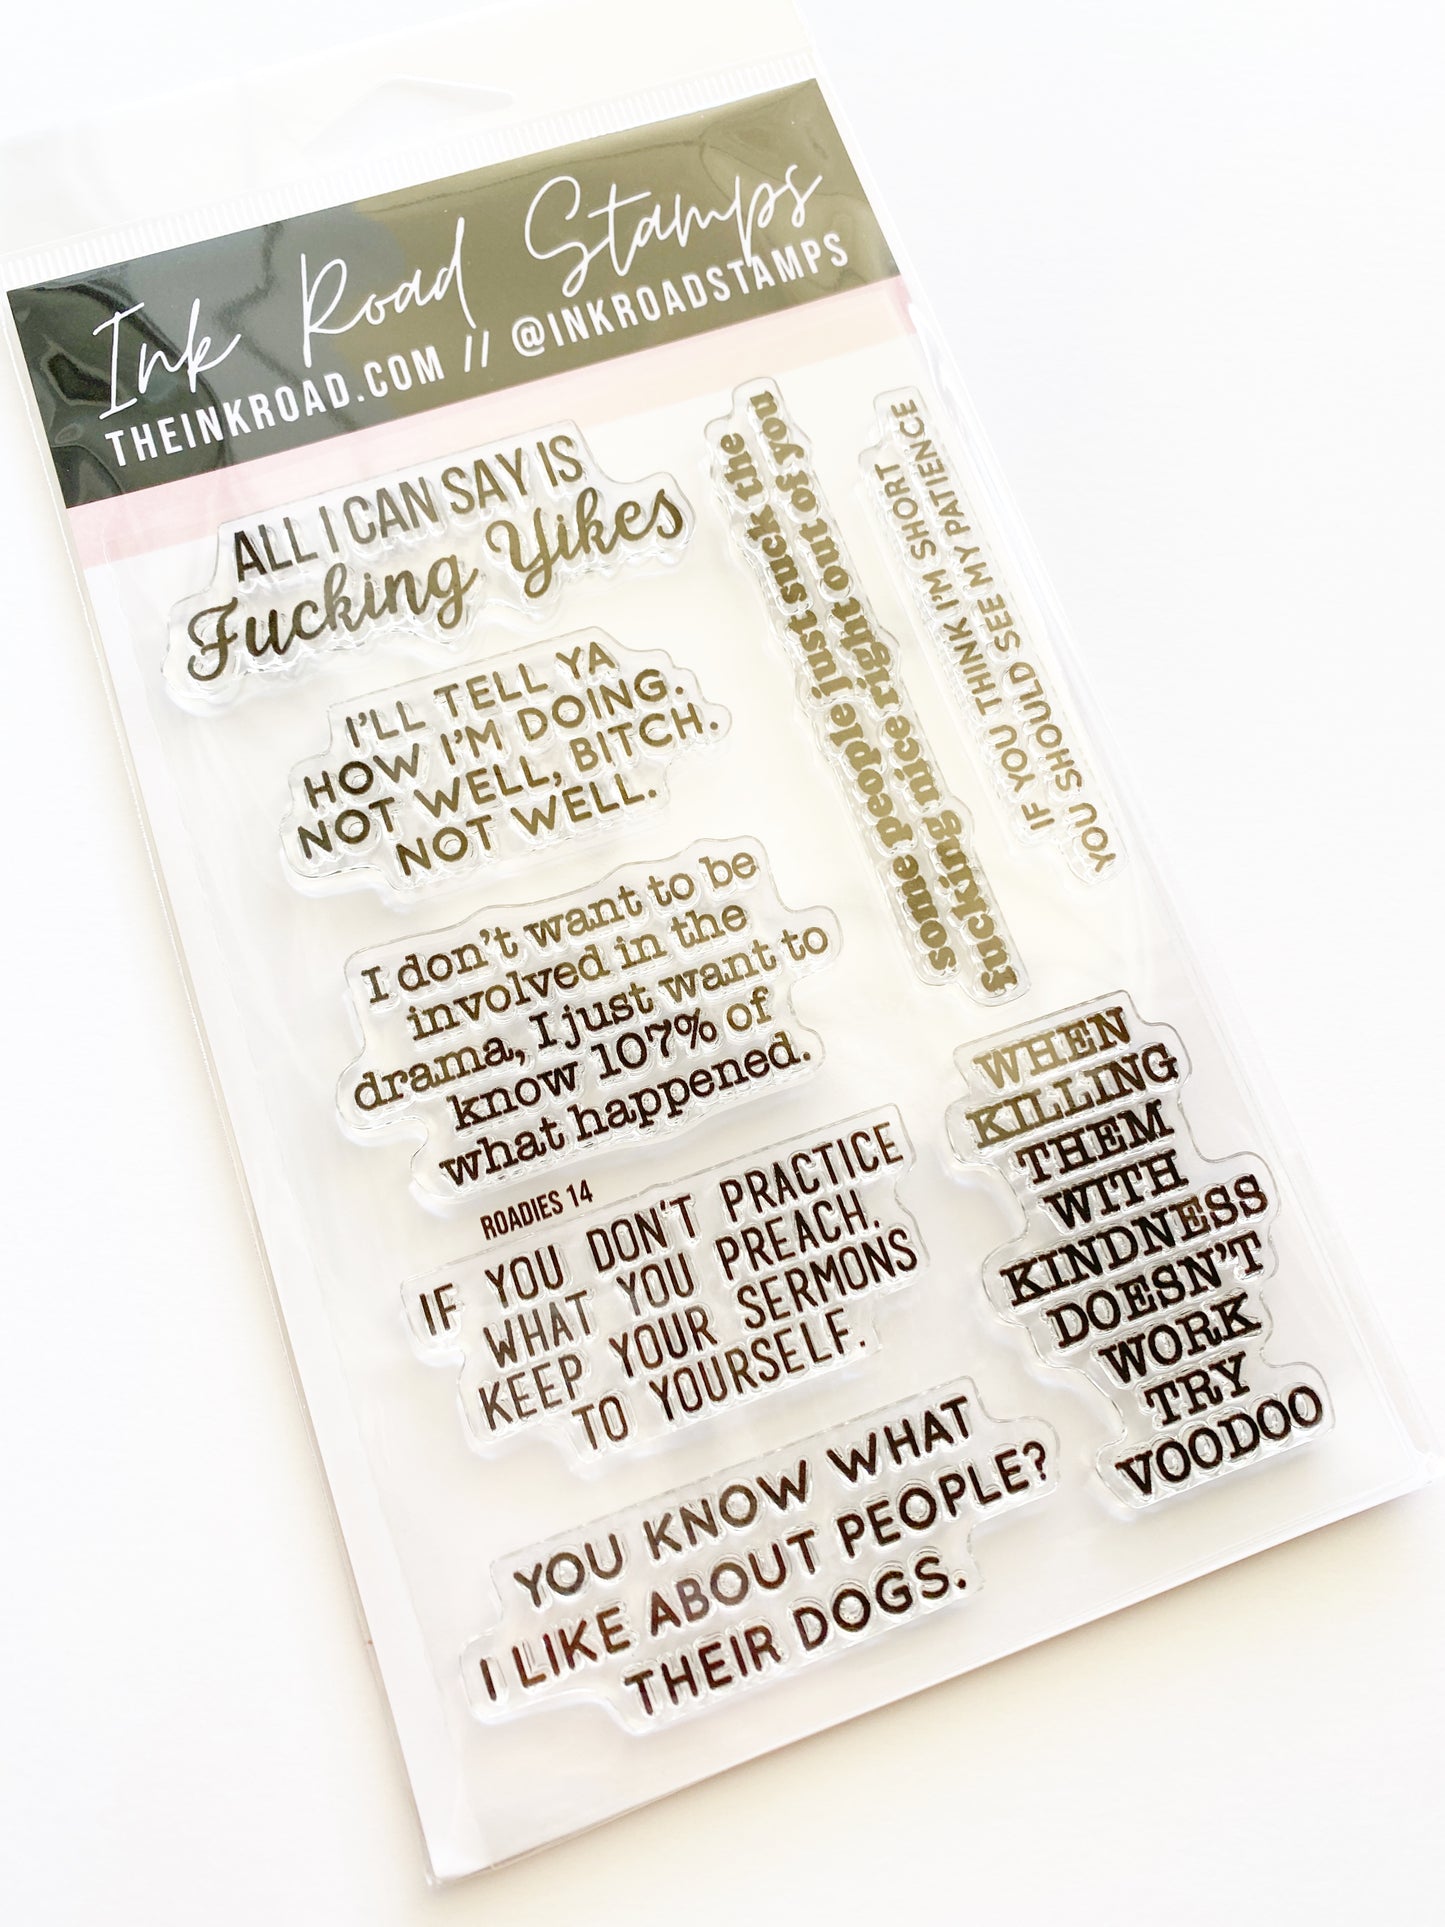 Ink Road Stamps
THEINKROAD.COM // @INKROADSTAMPS
ALL I CAN SAY IS
Fucking Yikes
I'LL TELL YA
HOW I'M DOING.
NOT WELL, BITCH.
NOT WELL.
I don't want to be
involved in the
drama, I just want to
know 107% of
what happened.
ROADIES 14
IF YOU DON'T PRACTICE
WHAT YOU PREACH,
KEEP YOUR SERMONS
TO YOURSELF.
YOU KNOW WHAT
I LIKE ABOUT PEOPLE?
THEIR DOGS.
some people just suck the
fucking nice right out of you
IF YOU THINK I'M SHORT
YOU SHOULD SEE MY PATIENCE
WHEN
KILLING
THEM
WITH
KINDNESS
DOESN'T
WORK
TRY
VOODOO